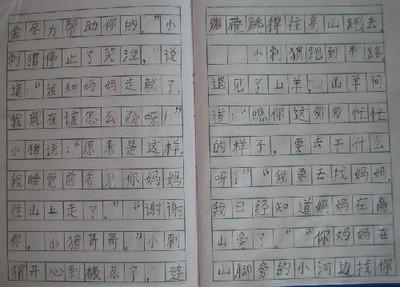 会尽力帮助你的。”小
刺猬停止了哭泣。“说
道：“我和妈妈走散了，
我现在该怎么办呀！”
小猪说：“原来是这样，
我睡觉前看见你妈妈
往山上走了。”“谢谢
你，小猪哥哥。”小刺
猬开心到极点了，连
蹦带跳得往高山跑去。
小刺猬跑到半路
遇见了山羊，山羊问
道：“瞧你这匆匆忙忙
的样子。要去干什么
呀？”“我要去找妈妈，
我已经知道妈妈在高
山旁了。”“你妈妈在
山脚旁的小河边找你